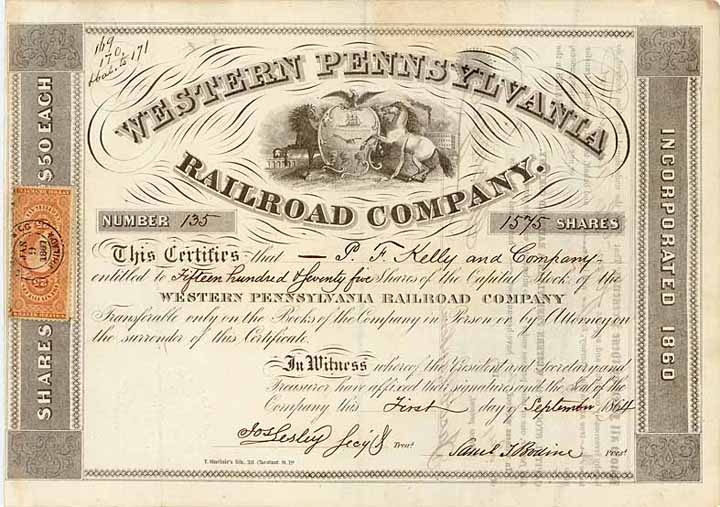 169
170,
171
WESTERN PENNSYLVANIA
RAILROAD COMPANY.
SHARES $50 EACH
INCORPORATED 1860
NUMBER 135
1575 SHARES
This Certifies that — P. F. Kelly and Company
entitled to Fifteen hundred & Seventy five Shares of the Capital Stock of the
WESTERN PENNSYLVANIA RAILROAD COMPANY
Transferable only on the Books of the Company in Person or by Attorney on
the surrender of this Certificate.
In Witness whereof the President and Secretary and
Treasurer have affixed their signatures and the Seal of the
Company this First day of September 1864
Jos Lesley Secy & Treasr.
Saml T Bodine Prest.
T. Sinclair's lith,
JAN